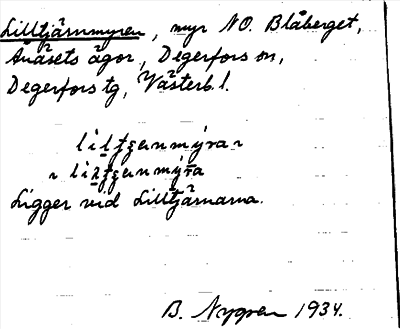 Lilltjärnmyren, myr NO. Blåberget,
Anåsets ägor, Degerfors sn,
Degerfors tg, Västerb. l.
Ligger vid Lilltjärnarna.
B. Nygren 1934.